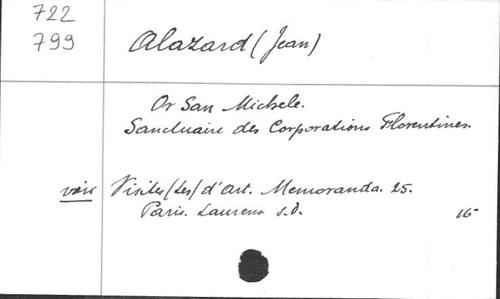 722
799
Alazard (Jean)
Or San Michele.
Sanctuaire des Corporations Florentines.
voir Visites (Les) d'art. Memoranda. 25.
Paris. Laurens s.d. 16-